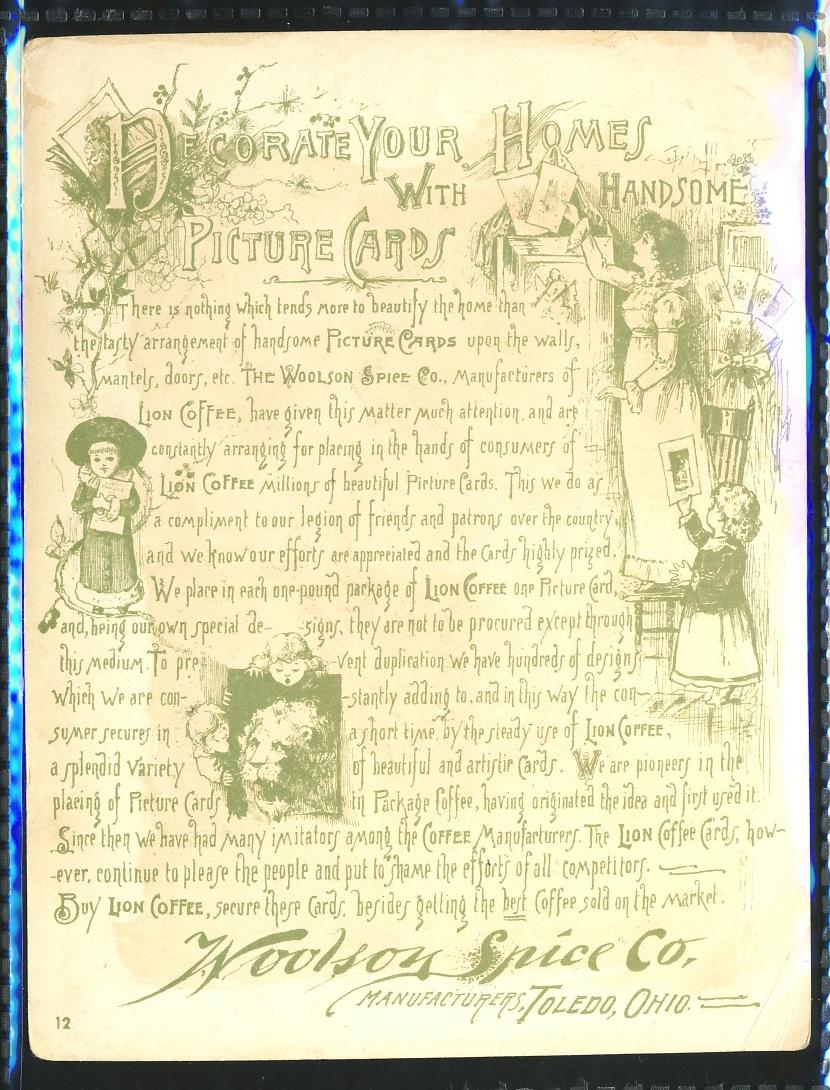 DECORATE YOUR HOMES
WITH HANDSOME
PICTURE CARDS
There is nothing which tends more to beautify the home than
the tasty arrangement of handsome PICTURE CARDS upon the walls,
mantels, doors, etc. THE WOOLSON SPICE CO., Manufacturers of
LION COFFEE, have given this matter much attention, and are
constantly arranging for placing in the hands of consumers of
LION COFFEE millions of beautiful Picture Cards. This we do as
a compliment to our legion of friends and patrons over the country,
and we know our efforts are appreciated and the Cards highly prized.
We place in each one-pound package of LION COFFEE one Picture Card,
and, being our own special de- signs, they are not to be procured except through
this medium. To pre -vent duplication we have hundreds of designs
which we are con- -stantly adding to, and in this way the con-
sumer secures in a short time, by the steady use of LION COFFEE,
a splendid variety of beautiful and artistic Cards. We are pioneers in the
placing of Picture Cards in Package Coffee, having originated the idea and first used it.
Since then we have had many imitators among the COFFEE Manufacturers. The LION Coffee Cards, how-
-ever, continue to please the people and put to shame the efforts of all competitors.
Buy LION COFFEE, secure these Cards, besides getting the best Coffee sold on the market.
Woolson Spice Co.
MANUFACTURERS, TOLEDO, OHIO.
12